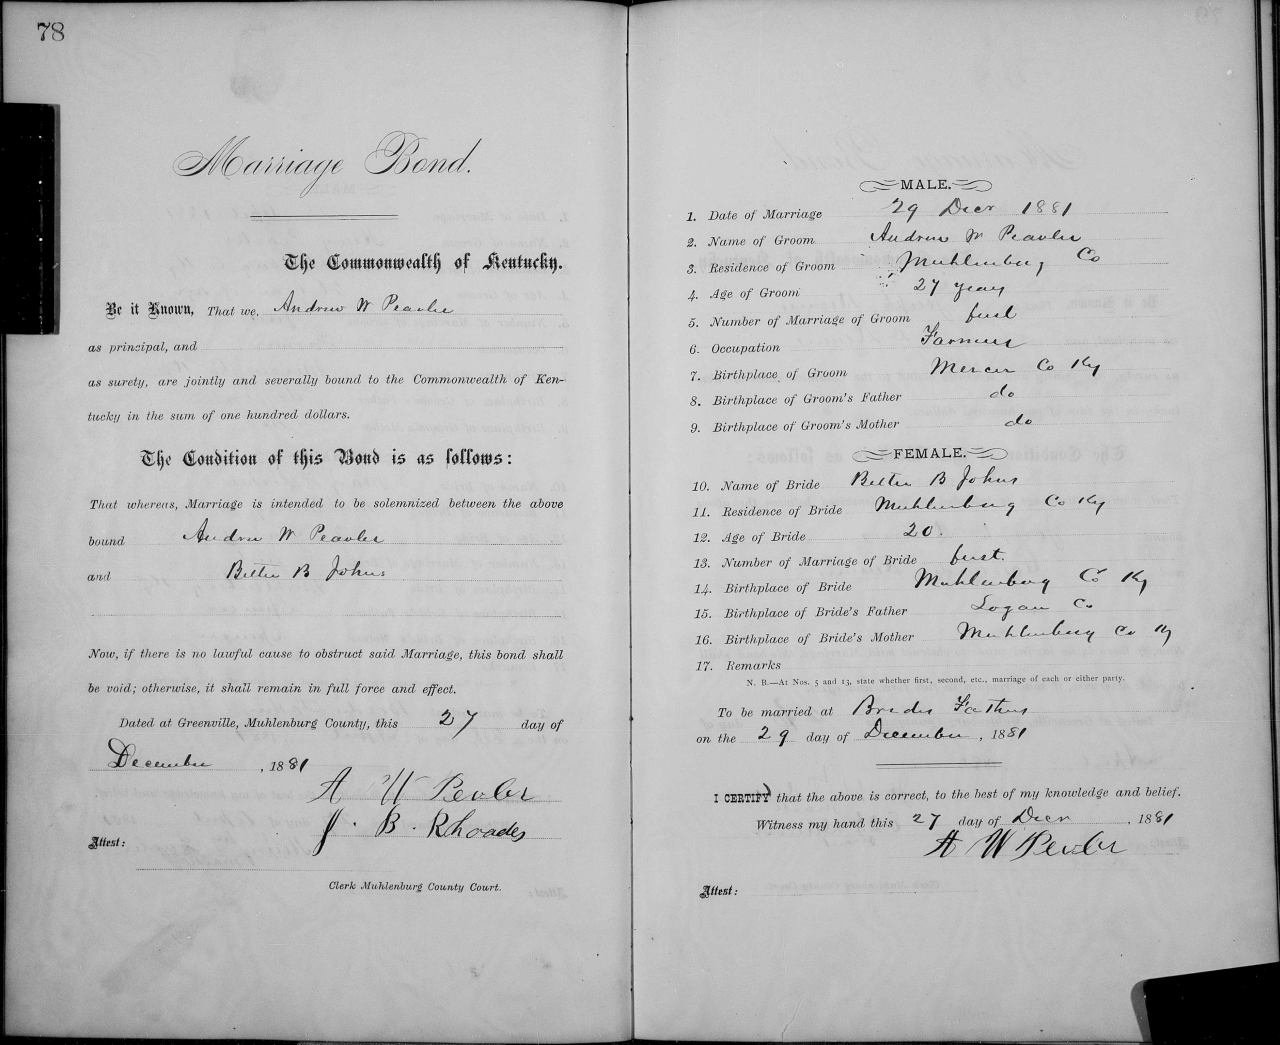 78
Marriage Bond.
The Commonwealth of Kentucky.
Be it Known, That we, Andrew W Peavler
as principal, and
as surety, are jointly and severally bound to the Commonwealth of Ken-
tucky in the sum of one hundred dollars.
The Condition of this Bond is as follows:
That whereas, Marriage is intended to be solemnized between the above
bound Andrew W Peavler
and Bettie B Johns
Now, if there is no lawful cause to obstruct said Marriage, this bond shall
be void; otherwise, it shall remain in full force and effect.
Dated at Greenville, Muhlenburg County, this 27 day of
December, 1881
A W Pevler
J. B. Rhoades
Attest:
Clerk Muhlenburg County Court.
MALE.
1. Date of Marriage 29 Decr 1881
2. Name of Groom Andrew W Peavler
3. Residence of Groom Muhlenburg Co
4. Age of Groom 27 years
5. Number of Marriage of Groom first
6. Occupation Farmer
7. Birthplace of Groom Mercer Co Ky
8. Birthplace of Groom's Father do
9. Birthplace of Groom's Mother do
FEMALE.
10. Name of Bride Bettie B Johns
11. Residence of Bride Muhlenburg Co Ky
12. Age of Bride 20.
13. Number of Marriage of Bride first.
14. Birthplace of Bride Muhlenburg Co Ky
15. Birthplace of Bride's Father Logan Co
16. Birthplace of Bride's Mother Muhlenburg Co Ky
17. Remarks
N. B.—At Nos. 5 and 13, state whether first, second, etc., marriage of each or either party.
To be married at Brides Fathers
on the 29 day of December, 1881
I CERTIFY that the above is correct, to the best of my knowledge and belief.
Witness my hand this 27 day of Decr, 1881
A W Pevler
Attest: